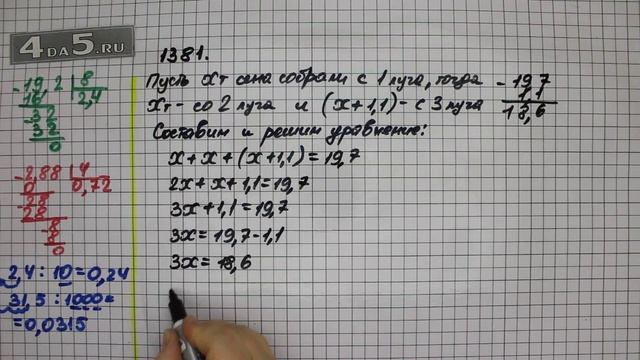 4DA5.RU
1381.
Пусть х т сена собрали с 1 луга, тогда
х т - со 2 луга и (х+1,1) - с 3 луга
Составим и решим уравнение:
х+х+(х+1,1)=19,7
2х+х+1,1=19,7
3х+1,1=19,7
3х=19,7-1,1
3х=18,6
-19,7
1,1
18,6
-19,2 | 8
16 | 2,4
-32
32
0
-2,88 | 4
0 | 0,72
-28
28
-8
8
0
2,4 : 10 = 0,24
31,5 : 1000 =
= 0,0315